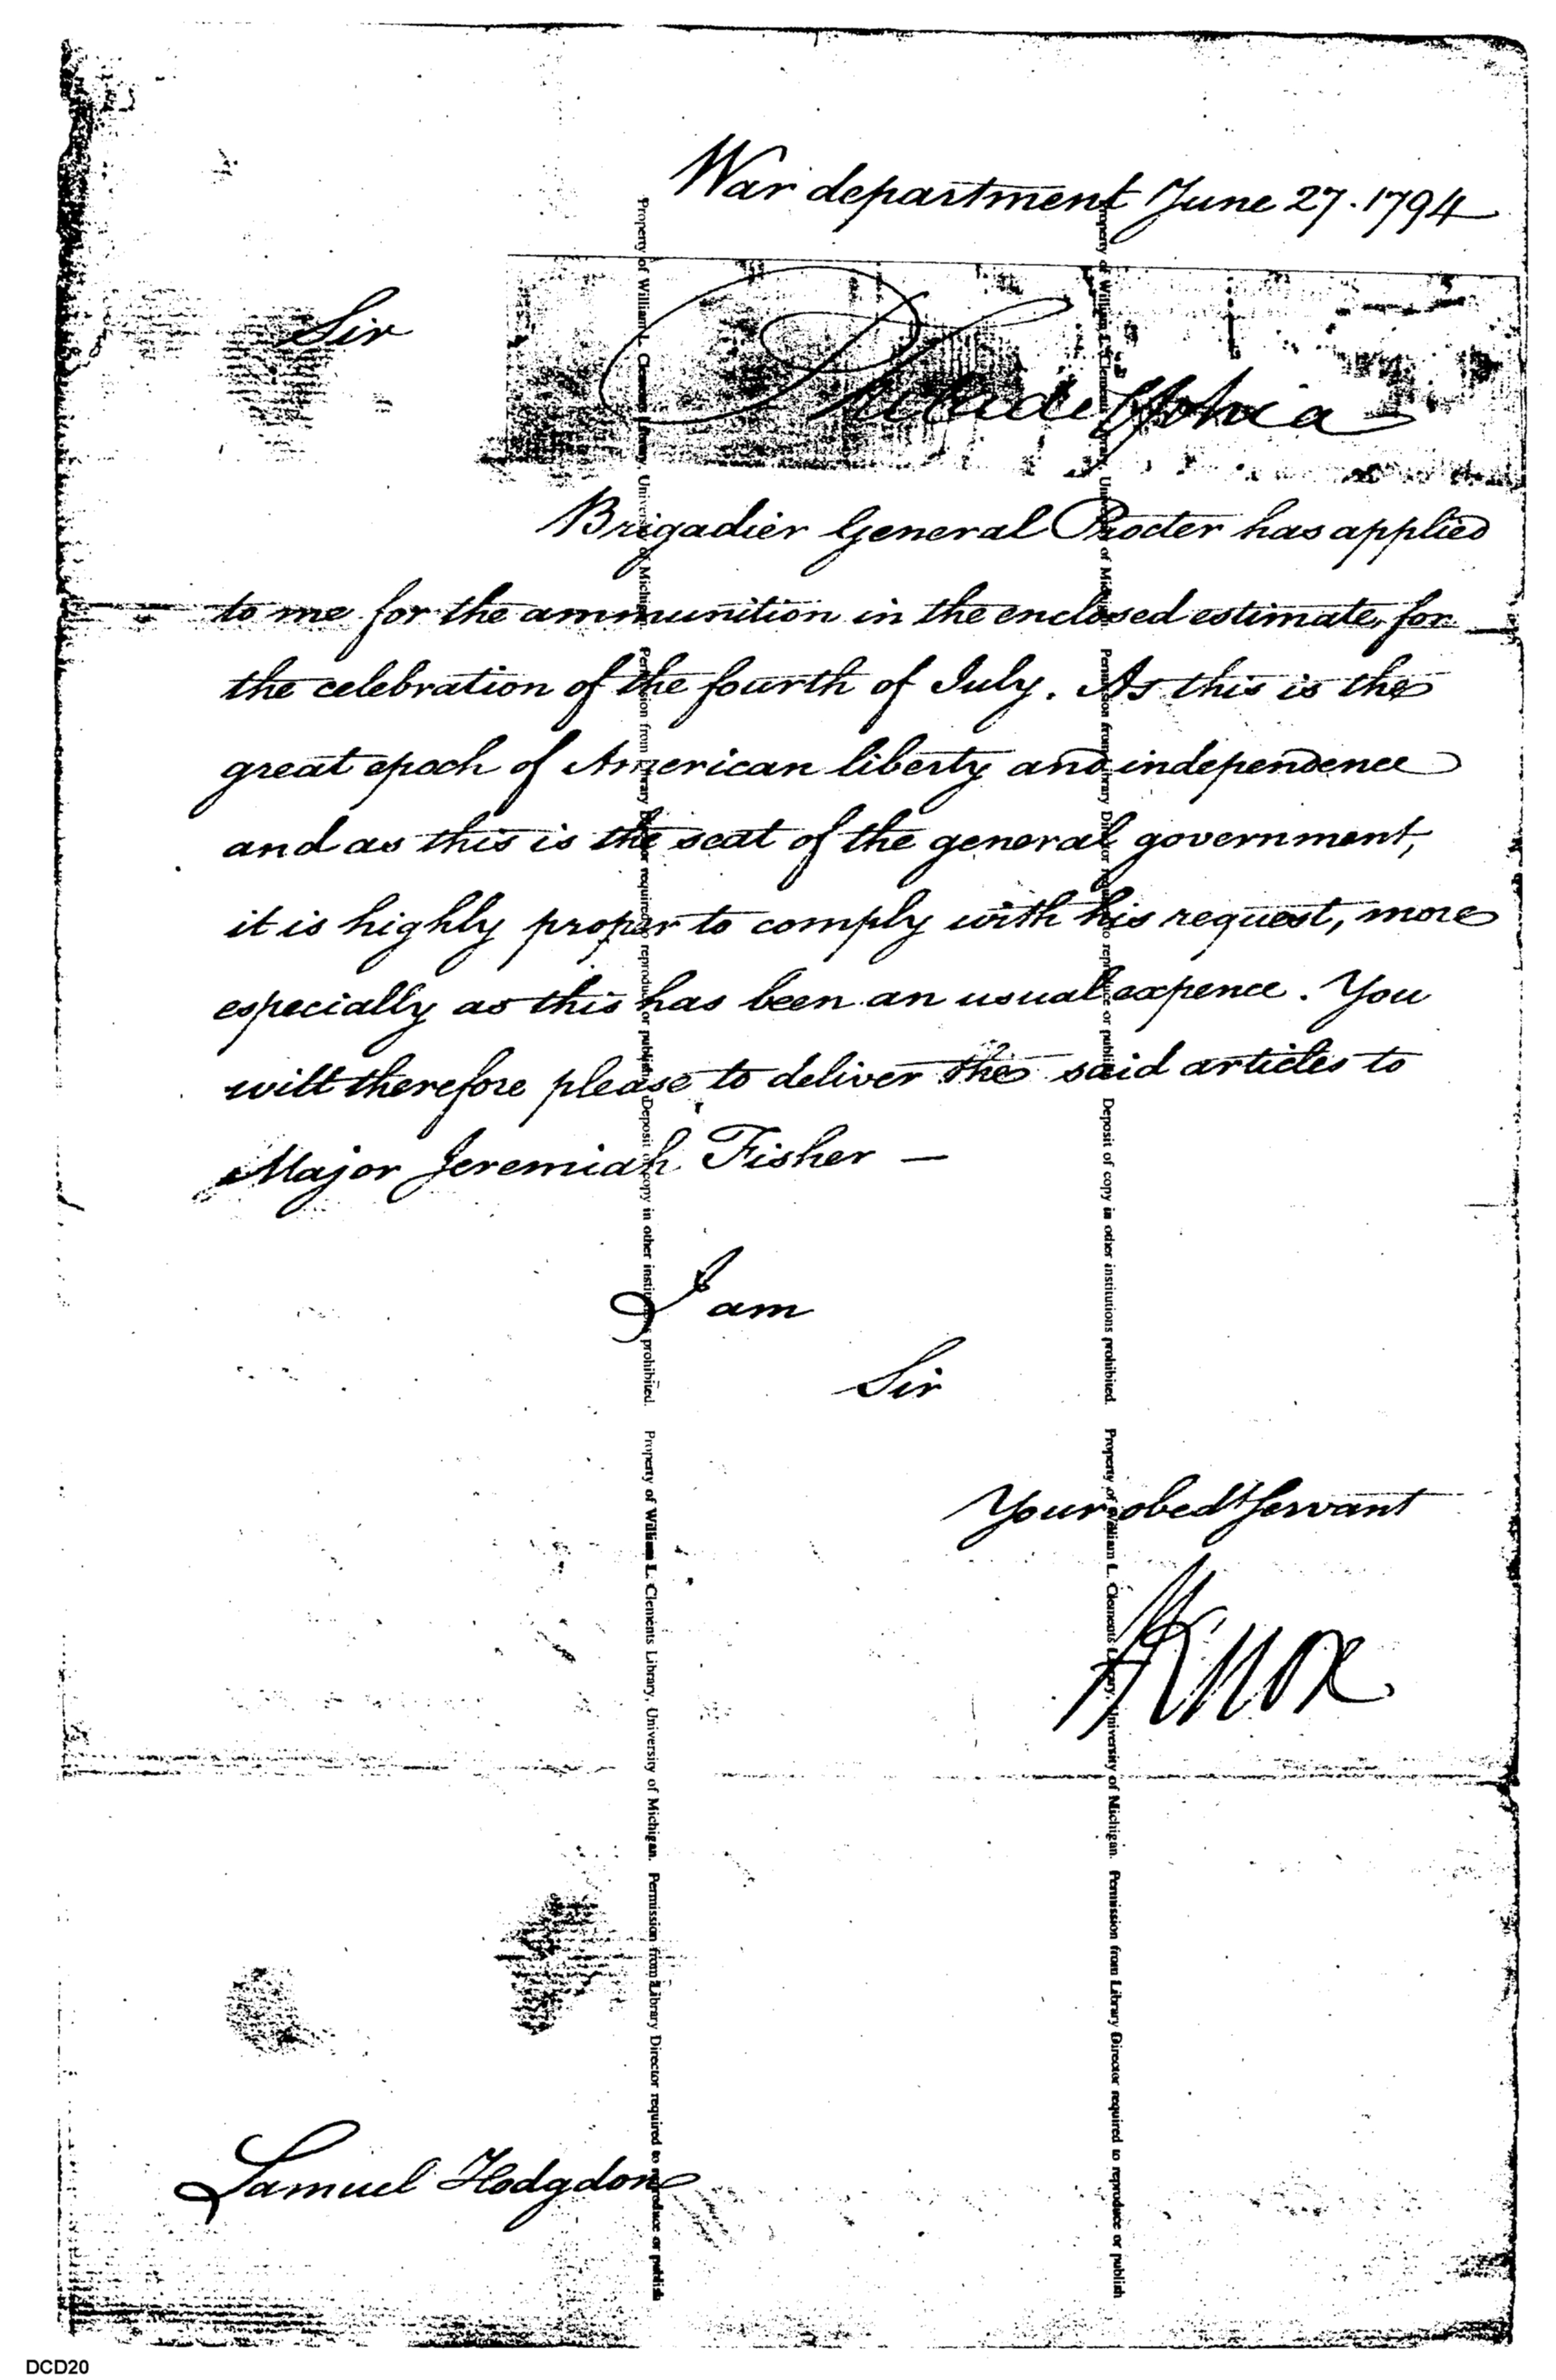 War department June 27. 1794
Sir
Philadelphia
Brigadier General Procter has applied
to me for the ammunition in the enclosed estimate, for
the celebration of the fourth of July. As this is the
great epoch of American liberty and independence
and as this is the seat of the general government,
it is highly proper to comply with his request, more
especially as this has been an usual expence. You
will therefore please to deliver the said articles to
Major Jeremiah Fisher —
I am
Sir
Your obedt Servant
HKnox
Samuel Hodgdon
Property of William L. Clements Library, University of Michigan. Permission from Library Director required to reproduce or publish. Deposit of copy in other institutions prohibited. Property of William L. Clements Library, University of Michigan. Permission from Library Director required to reproduce or publish
Property of William L. Clements Library, University of Michigan. Permission from Library Director required to reproduce or publish. Deposit of copy in other institutions prohibited. Property of William L. Clements Library, University of Michigan. Permission from Library Director required to reproduce or publish
DCD20